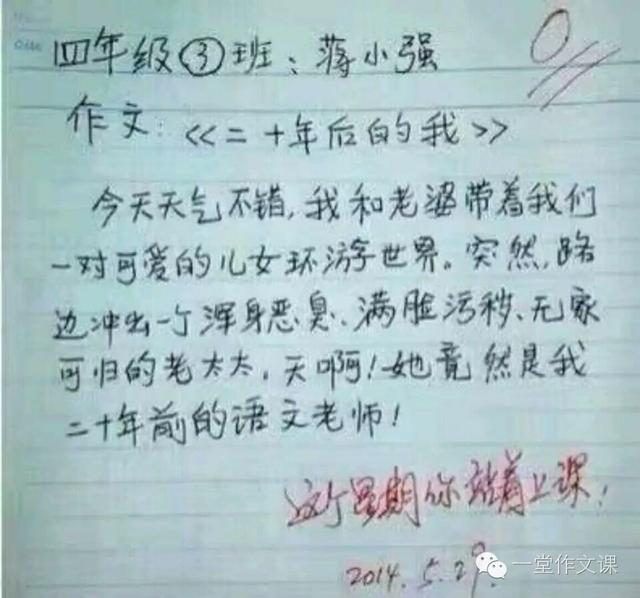 四年级③班：蒋小强
0
作文：<<二十年后的我>>
今天天气不错，我和老婆带着我们
一对可爱的儿女环游世界。突然，路
边冲出一个浑身恶臭、满脸污秽、无家
可归的老太太，天啊！她竟然是我
二十年前的语文老师！
这个星期你站着上课！
2014.5.29.
一堂作文课